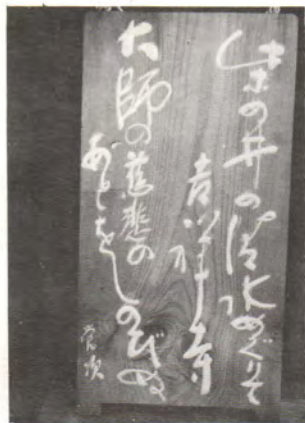 柴の井の清水めぐりて
吉祥寺
大師の慈悲の
あとをしのびぬ